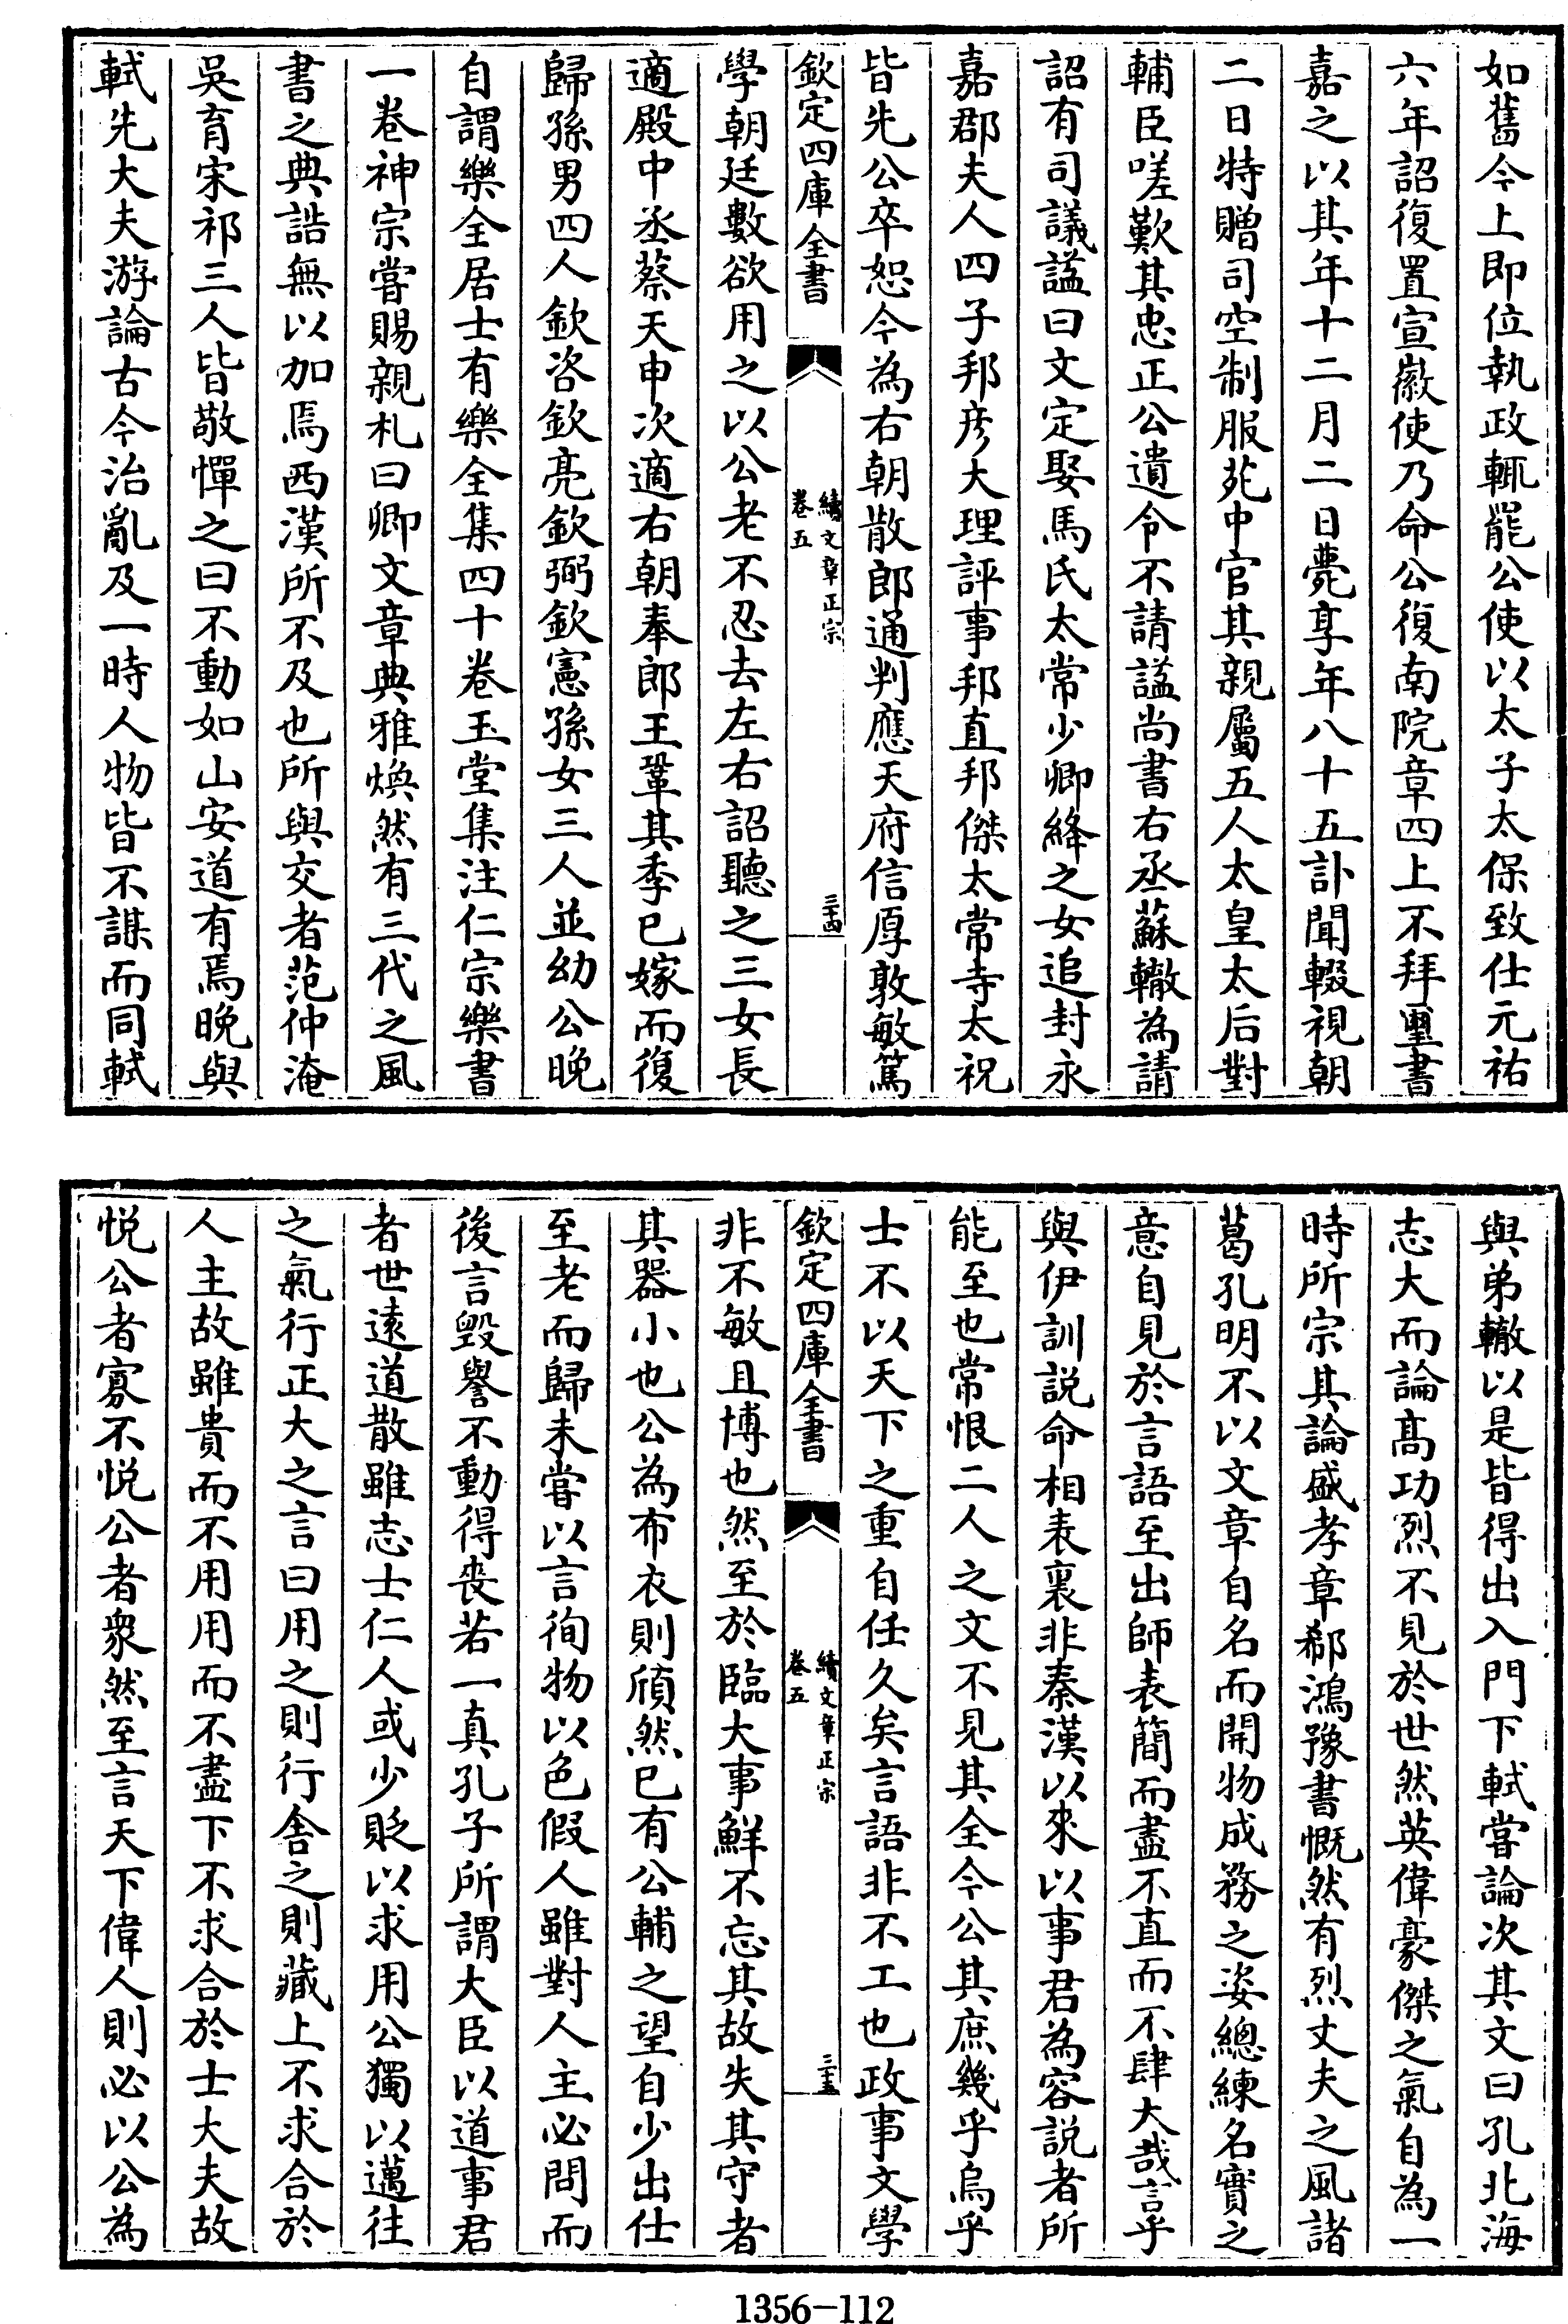 如舊今上即位執政輒罷公使以太子太保致仕元祐
六年詔復置宣徽使乃命公復南院章四上不拜璽書
嘉之以其年十二月二日薨享年八十五訃聞輟視朝
二日特贈司空制服苑中官其親屬五人太皇太后對
輔臣嗟歎其忠正公遺令不請謚尚書右丞蘇轍為請
詔有司議謚曰文定娶馬氏太常少卿絳之女追封永
嘉郡夫人四子邦彥大理評事邦直邦傑太常寺太祝
皆先公卒恕今為右朝散郎通判應天府信厚敦敏篤
欽定四庫全書
續文章正宗
卷五
三十四
學朝廷數欲用之以公老不忍去左右詔聽之三女長
適殿中丞蔡天申次適右朝奉郎王鞏其季已嫁而復
歸孫男四人欽咨欽亮欽弼欽憲孫女三人並幼公晚
自謂樂全居士有樂全集四十卷玉堂集注仁宗樂書
一卷神宗嘗賜親札曰卿文章典雅煥然有三代之風
書之典誥無以加焉西漢所不及也所與交者范仲淹
吳育宋祁三人皆敬憚之曰不動如山安道有焉晚與
軾先大夫游論古今治亂及一時人物皆不謀而同軾
與弟轍以是皆得出入門下軾嘗論次其文曰孔北海
志大而論髙功烈不見於世然英偉豪傑之氣自為一
時所宗其論盛孝章郗鴻豫書慨然有烈丈夫之風諸
葛孔明不以文章自名而開物成務之姿總練名實之
意自見於言語至出師表簡而盡不直而不肆大哉言乎
與伊訓説命相表裏非秦漢以來以事君為容説者所
能至也常恨二人之文不見其全今公其庶幾乎烏乎
士不以天下之重自任久矣言語非不工也政事文學
欽定四庫全書
續文章正宗
卷五
三十五
非不敏且博也然至於臨大事鮮不忘其故失其守者
其器小也公為布衣則頎然已有公輔之望自少出仕
至老而歸未嘗以言徇物以色假人雖對人主必問而
後言毀譽不動得喪若一真孔子所謂大臣以道事君
者世遠道散雖志士仁人或少貶以求用公獨以邁往
之氣行正大之言曰用之則行舍之則藏上不求合於
人主故雖貴而不用用而不盡下不求合於士大夫故
悅公者寡不悅公者衆然至言天下偉人則必以公為
1356-112